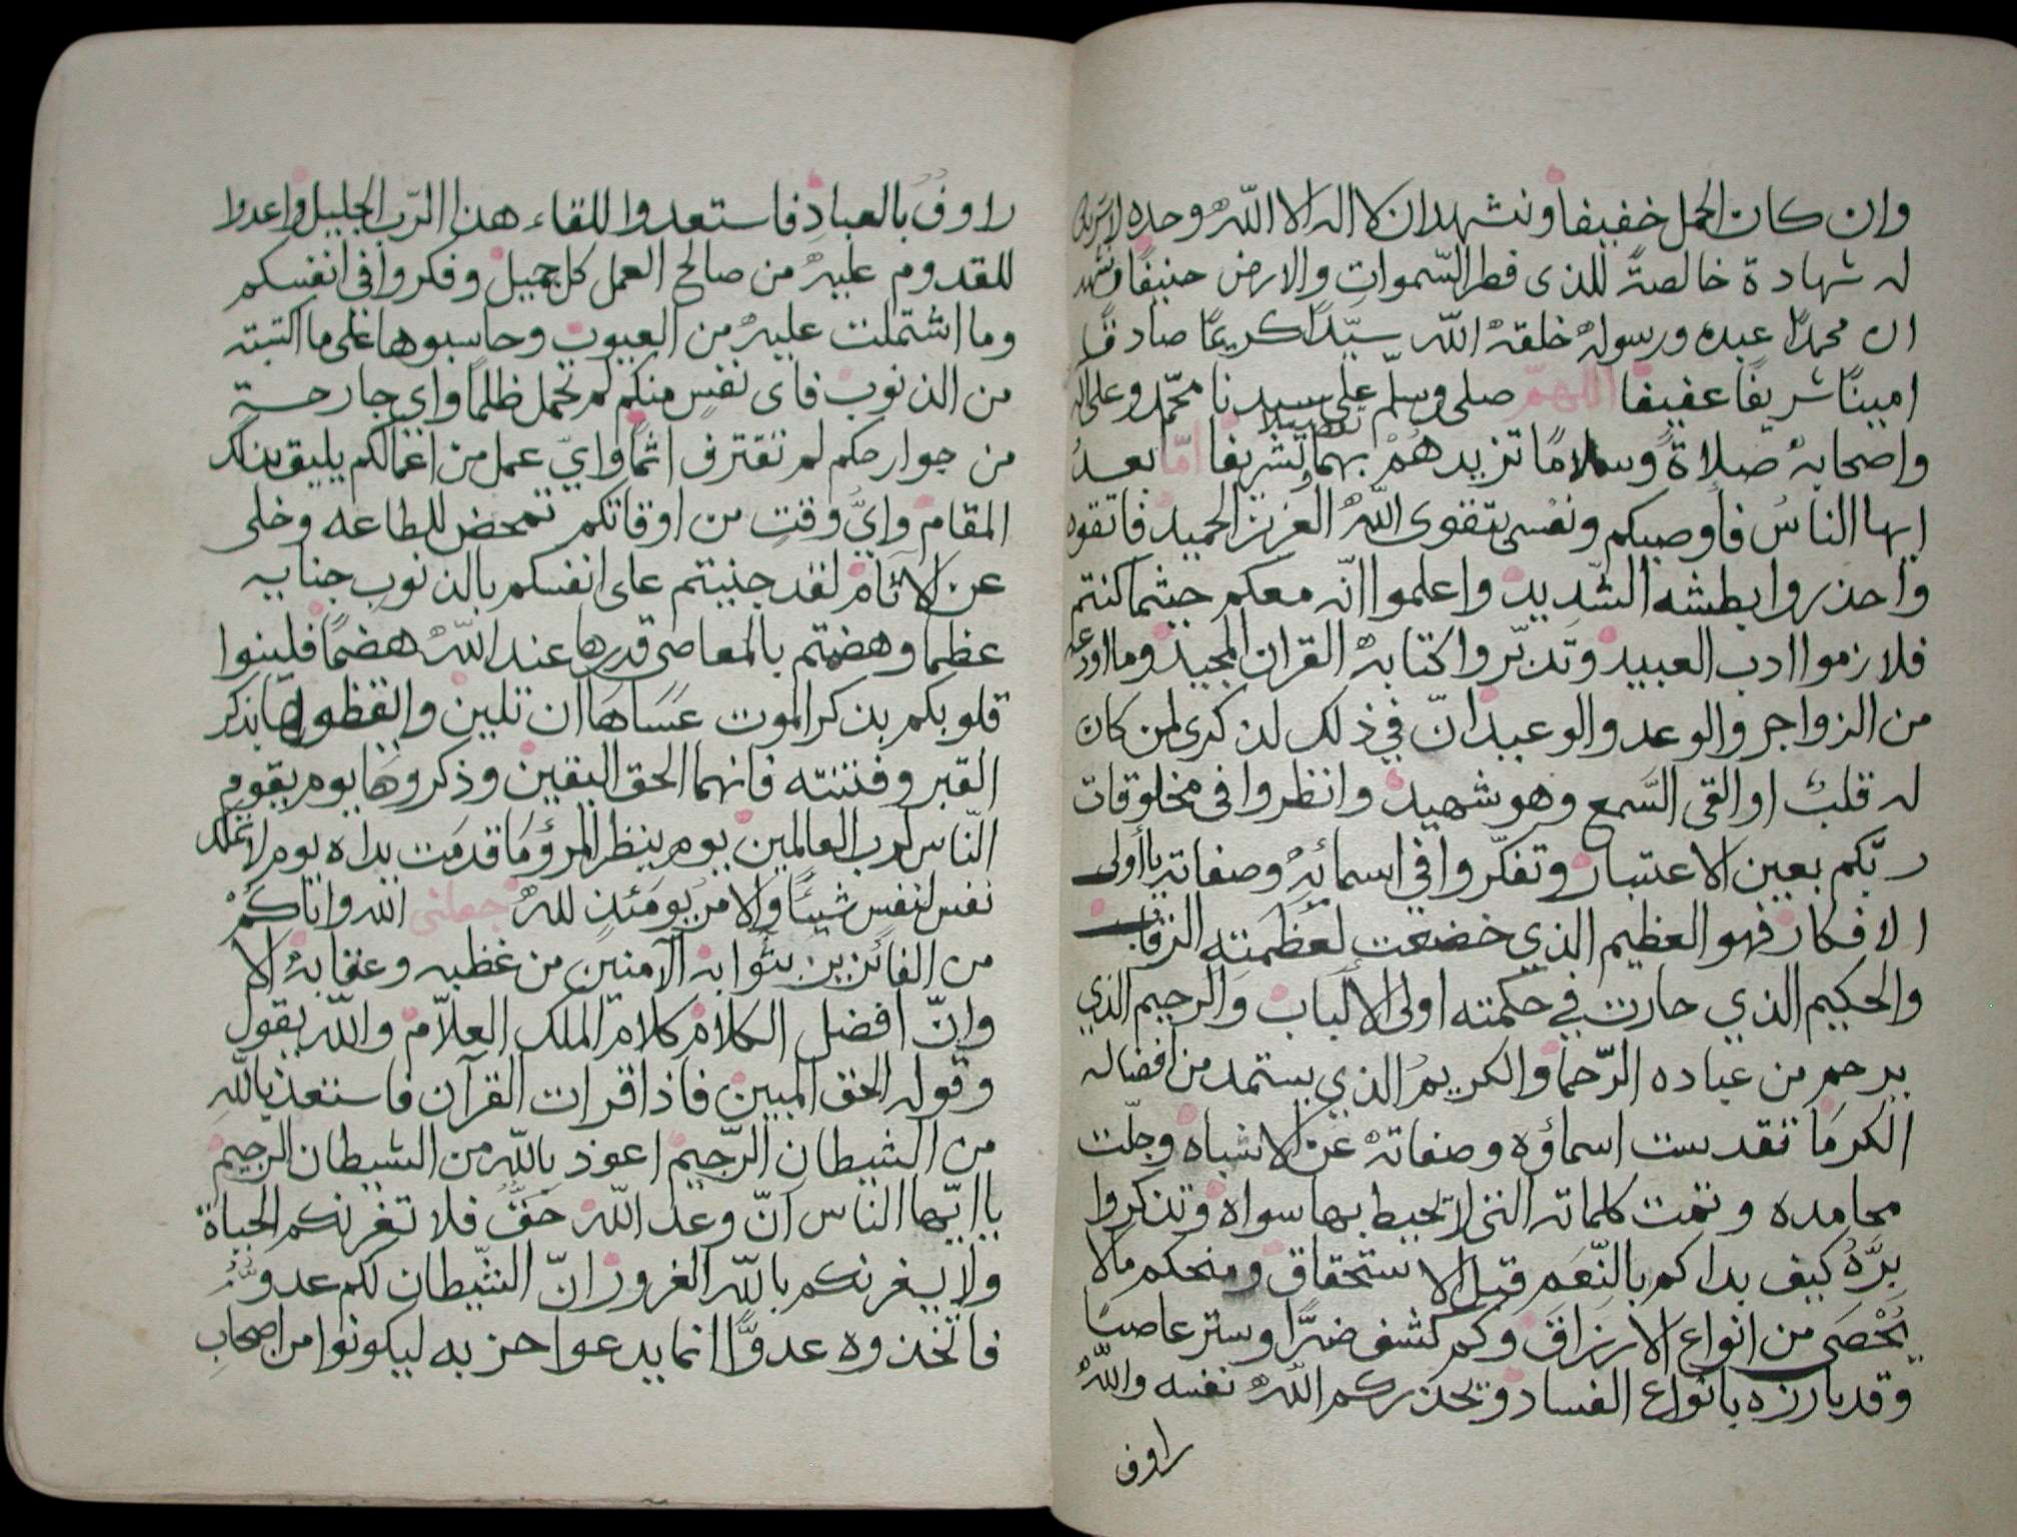 وان كان الحمل خفيفا ونشهد ان لا اله الا اللّه وحده لا شريك
له شهادة خالصةً للذى فطر السّموات والارض حنيفًا ونشهد
ان محمدًا عبده ورسوله خلقه اللّه سيّدًا كريمًا صادقًا
امينًا شريفًا عفيفًا اللهمّ صلى وسلّم على سيدنا محمّد وعلى اله
واصحابه صلاةً وسلامًا تزيدهُمْ بهما تفضيلا وتشريفا امّا بعدُ
ايها الناسُ فأوصيكم ونفسى بتقوى اللّه العزيز الحميد فاتقوه
واحذروا بطشه الشّديد واعلموا انّه معكم حيثما كنتم
فلازموا ادب العبيد وتدبّروا كتابه القران المجيد وما اودعه
من الزواجر والوعد والوعيد انّ في ذلك لذكرى لمن كان
له قلبٌ او القى السَّمع وهو شهيد وانظروا فى مخلوقات
ربّكم بعين الاعتبار وتفكّروا في اسمائه وصفاته يا أولى
الافكار فهو العظيم الذي خضعت لعظمته الرقاب
والحكيم الذي حارت في حكمته اولى الألباب والرحيم الذي
يرحم من عباده الرّحما والكريمُ الذي يستمد من افضاله
الكرمَا تقدست اسماؤه وصفاته عن الاشباه وجلّت
محامده وتمت كلماته التى لا تحيط بها سواه وتذكروا
بِرَّهُ كيف بداكم بالنّعَم قبل الاستحقاق ومنحكم مالا
يُحْصَى من انواع الارزاق وكم كشف ضرًّا وستر عاصيًا
وقد بارزه بانواع الفساد ويحذركم اللّه نفسه واللّهُ
راوف
راوفٌ بالعباد فاستعدوا للقاء هذا الرّب الجليل واعدوا
للقدوم عليه من صالح العمل كل جميل وفكروا فى انفسكم
وما اشتملت عليه من العيوب وحاسبوها على ما اكتسبته
من الذنوب فاى نفسٍ منكم لم تحمل ظلمًا واي جارحة
من جوارحكم لم تقترف اثمًا وايّ عمل من اعمالكم يليق بذلك
المقام وايُّ وقتٍ من اوقاتكم تمحض للطاعه وخلى
عن الاثام لقد جنيتم على انفسكم بالذنوب جنايه
عظما وهضمتم بالمعاصى قدرها عند اللّه هضمًا فلينوا
قلوبكم بذكر الموت عَسَاهَا ان تلين وايقظوها بذكر
القبر وفتنته فانهما الحق اليقين وذكروهَا يوم يقوم
النّاس لرب العالمين يوم ينظر المرؤ مَا قدمَت يداه يوم لا تملك
نفس لنفس شيئًا والامر يومَئذٍ للهِ جعلنى الله واياكُمْ
من الفائزين بثوابه الآمنين من غظبه وعقابه الا
وانّ افضل الكلام كلام الملك العلّام واللّه يقول
وقوله الحق المبين فاذا قرات القرآن فاستعذ باللّهِ
من الشيطان الرّجيم اعوذ باللّه من الشيطان الرّجيم
يا ايّها الناس انّ وعد اللّه حَقٌّ فلا تغرنكم الحياة
ولا يغرنكم باللّه الغرور انّ الشّيطان لكم عدوٌّ
فاتخذوه عدوًّا انما يدعوا حزبه ليكونوا من اصحابِ